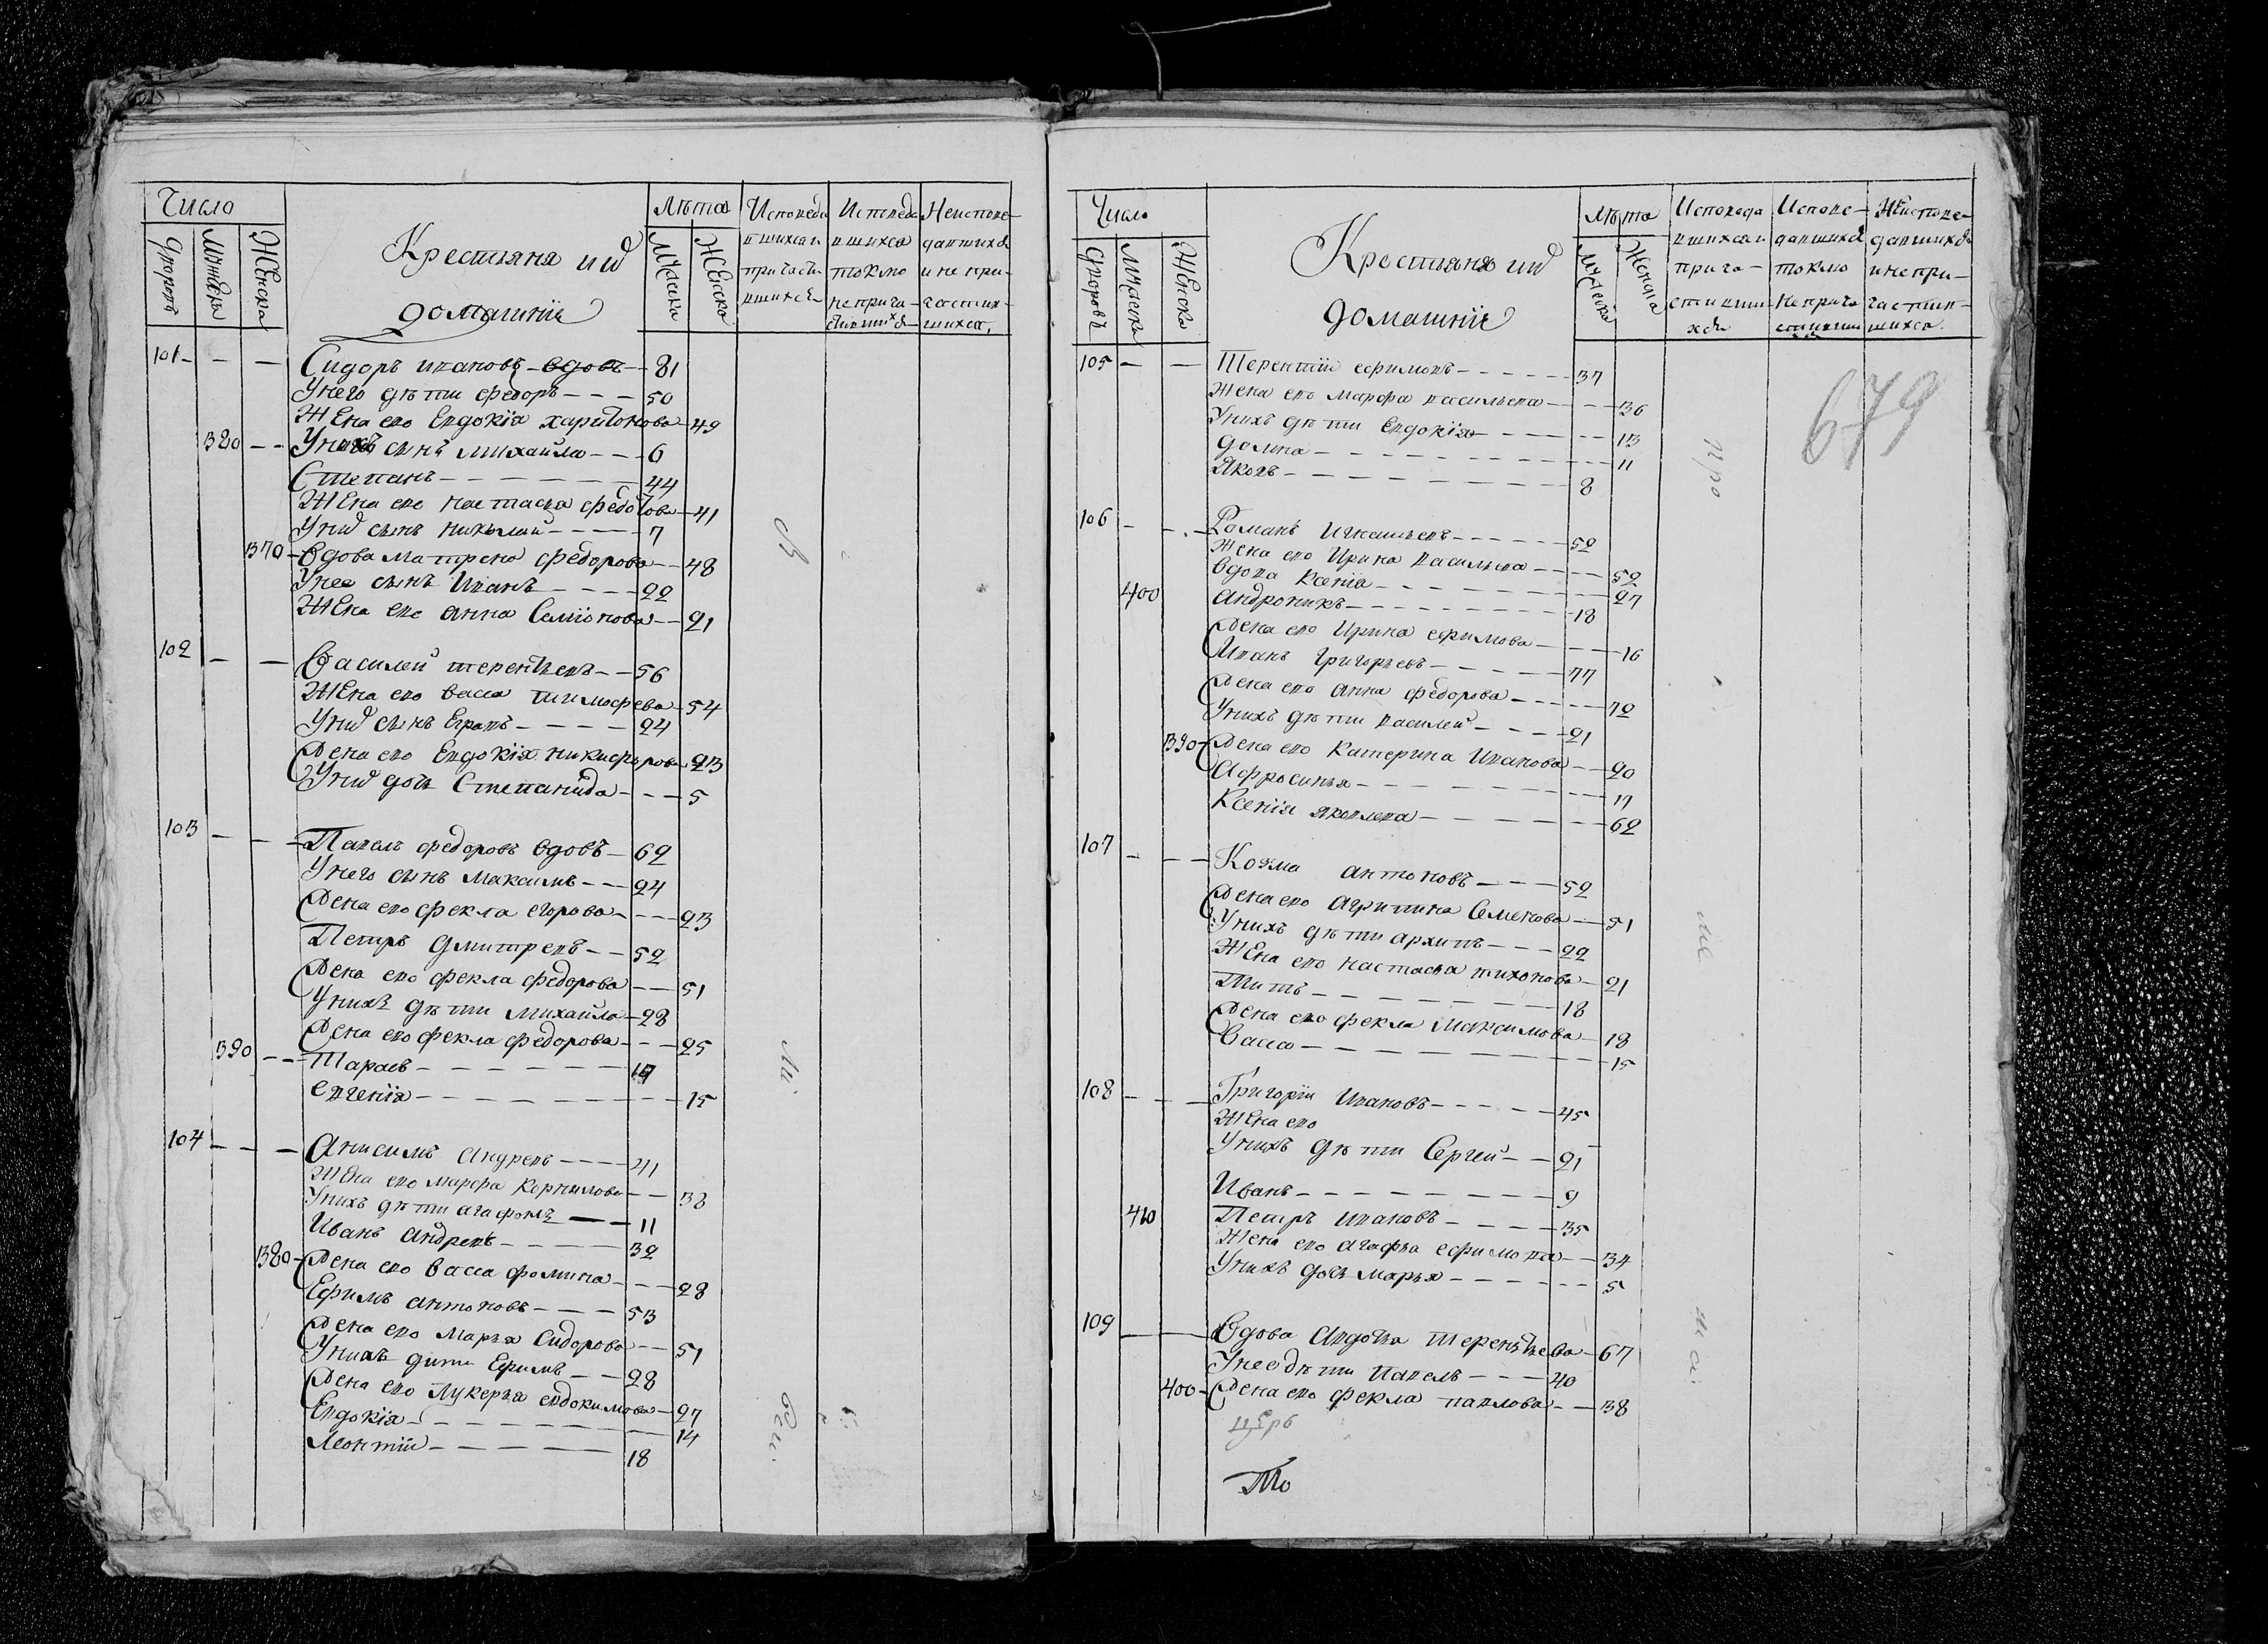 Число
Крестьяня ихъ
домашнiе
Лѣта
Исповеда
вшихся и
причасти
вшихся
Исповеда
вшихся
токмо
не прича-
стившихся
Неиспове-
давшихся
и не при-
частив-
шихся.
Дворовъ
Мужеска
Женска
Мужеска
Женска
101 - - - Сидоръ ивановъ вдовъ - 81
Унего дѣти федоръ - - - 50
Жена его Евдокiя харитонова - 49
320 - - Унихъ сынъ михайла - - - 6
Степанъ - - - 44
Жена его настасья федотова - 41
Унихъ сынъ николай - - - 7
370 - Вдова матрена федорова - - 48
Унее сынъ Иванъ - - - 22
Жена его анна Семiонова - - 21
102 - - Василей терентьевъ - - 56
Жена его васса тимофева - 54
Унихъ сынъ Еграпъ - - - 24
Жена его Евдокiя никифорова 23
Унихъ дочь Степанида - - - 5
103 - - - Павелъ федоровъ вдовъ - 62
Унего сынъ максимъ - - 24
Жена его фекла егорова - - - 23
Петръ дмитревъ - - 52
Жена его фекла федорова - - 51
Унихъ дѣти михайла - 28
Жена его фекла федорова - - - 25
390 - - Тарасъ - - - 17
евгенiя - - - 15
104 - - - Анисимъ андревъ - - - 41
Жена его марфа корнилова - - 38
Унихъ дѣти агафонъ - - 11
Иванъ андревъ - - - 32
380 - Жена его васса фомина - - - 28
Ефимъ антоновъ - - - 53
Жена его марья Сидорова - - 51
Унихъ дити Ефимъ - - 28
Жена его лукерья евдокимова - 27
Евдокiя - - - 14
Леонтiи - - - 18
Число
Крестьяня ихъ
домашнiе
Лѣта
Исповеда
вшихся и
прича-
стивши-
хся
Испове-
давшихся
токмо
не прича
стивши
Неиспове-
давшихся
и не при-
частив-
шихся.
Дворовъ
Мужеска
Женска
Мужеска
Женска
679
105 - - Терентiи ефимовъ - - - 37
Жена его марфа васильева - - - 36
Унихъ дѣти Евдокiя - - - 13
домна - - - 11
Яковъ - - - 8
106 - - - Романъ Игнатьевъ - - - 52
Жена его Ирина васильева - - - 52
Вдова Ксенiя - - - 27
400 андроникъ - - - 18
Жена его Ирина ефимова - - - 16
Иванъ григорьевъ - - - 77
Жена его анна федорова - - - 72
Унихъ дѣти василей - - - 21
390 - Жена его катерина Иванова - - 20
Афросинья - - - 17
Ксенiя яковлева - - - 62
107 - - - Козма антоновъ - - - 52
Жена его агрипина Семенова - - 51
Унихъ дѣти архипъ - - - 22
Жена его настасья тихонова - 21
Титъ - - - 18
Жена его фекла максимова - 18
Васса - - - 15
108 - - - Григорiи Ивановъ - - - 45
Жена его
Унихъ дѣти Сергей - - 21
Иванъ - - - 9
410 Петръ ивановъ - - - 35
Жена его агафья ефимова - - 34
Унихъ дочь марья - - - 5
109 - - Вдова Авдотья терентьева - 67
Унее дѣти Павелъ - - - 40
400 - Жена его фекла павлова - - 38
церб
То